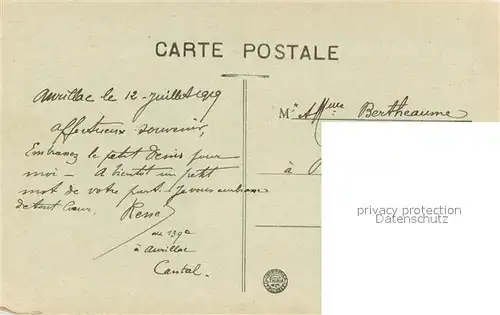 CARTE POSTALE
Aurillac le 12 - Juillet 1919
Affectueux souvenir,
Embrassez le petit Denis pour
moi - A bientôt un petit
mot de votre part. Je vous embrasse
de tout Cœur. René
au 139e
à Aurillac
Cantal.
M Mme Bertheaume
à
privacy protection